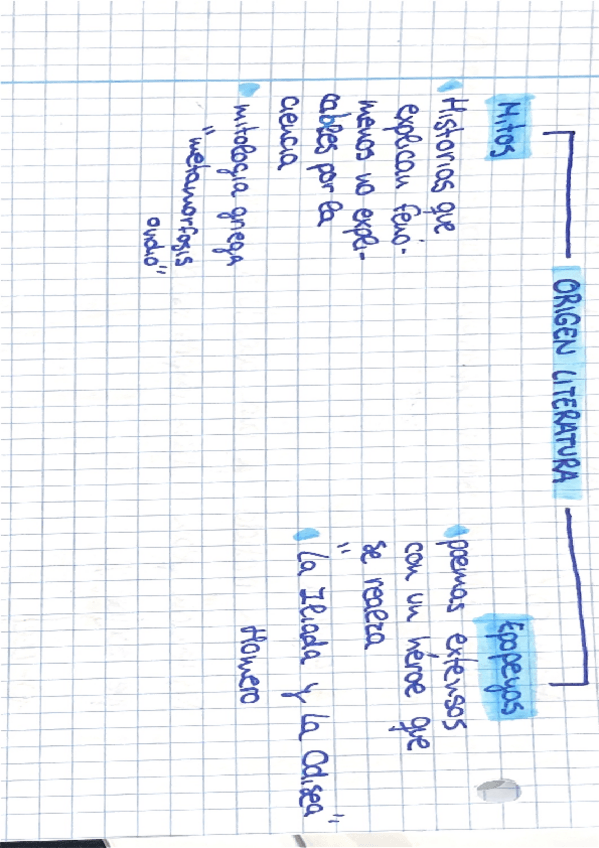 ORIGEN LITERATURA
Mitos
Historias que
explican fenó-
menos no expli-
cables por la
ciencia
mitología griega
"metamorfosis
ovidio"
Epopeyas
poemas extensos
con un héroe que
se realza
"La Iliada y La Odisea"
Homero